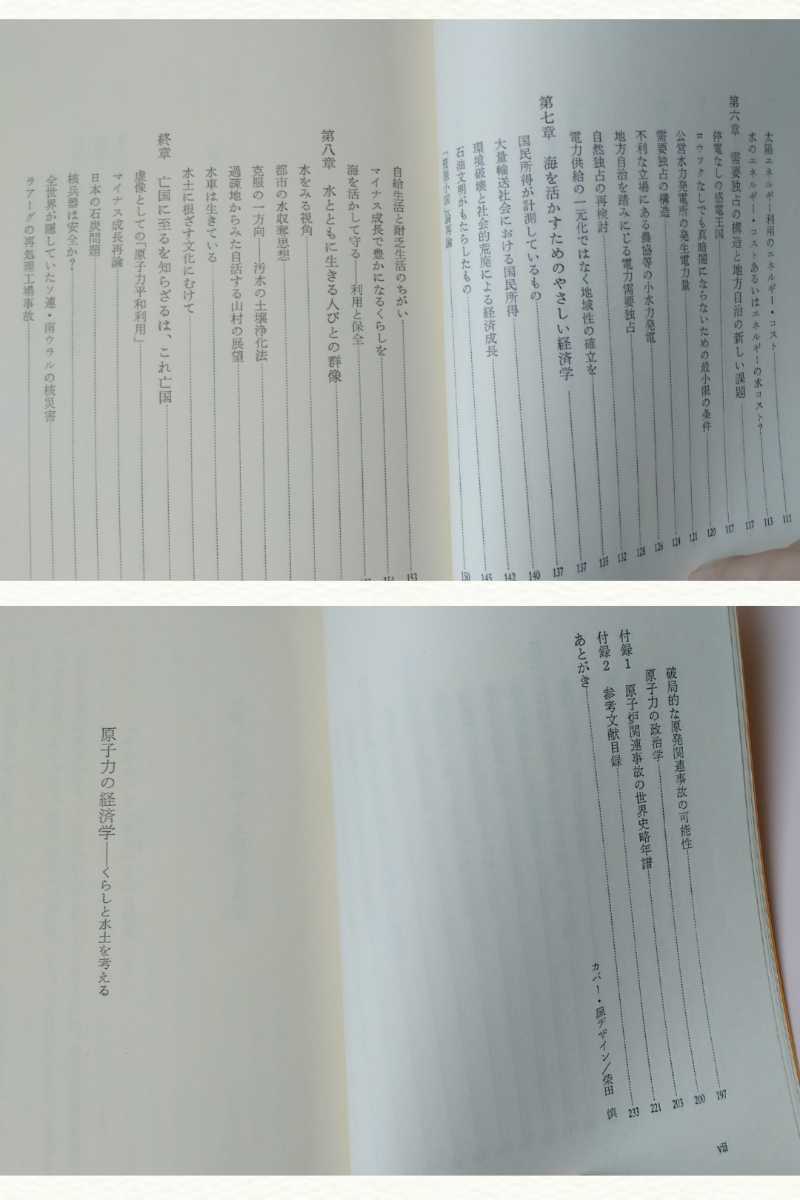 太陽エネルギー利用のエネルギー・コスト 111
水のエネルギー・コストあるいはエネルギーの水コスト? 113
第六章 需要独占の構造と地方自治の新しい課題 117
停電なしの感電王国 117
ロウソクなしでも真暗闇にならないための最小限の条件 120
公営水力発電所の発生電力量 121
需要独占の構造 124
不利な立場にある農協等の小水力発電 126
地方自治を踏みにじる電力需要独占 128
自然独占の再検討 132
電力供給の一元化ではなく地域性の確立を 135
第七章 海を活かすためのやさしい経済学 137
国民所得が計測しているもの 137
大量輸送社会における国民所得 140
環境破壊と社会的荒廃による経済成長 142
石油文明がもたらしたもの 145
論再論 150
自給生活と耐乏生活のちがい 153
マイナス成長で豊かになるくらしを 154
海を活かして守る――利用と保全
第八章 水とともに生きる人びとの群像
水をみる視角
都市の水収奪思想
克服の一方向――汚水の土壌浄化法
過疎地からみた自活する山村の展望
水車は生きている
水土に根ざす文化にむけて
終章 亡国に至るを知らざるは、これ亡国
虚像としての「原子力平和利用」
マイナス成長再論
日本の石炭問題
核兵器は安全か?
全世界が隠していたソ連・南ウラルの核災害
ラアーグの再処理工場事故
破局的な原発関連事故の可能性 197
原子力の政治学 200
付録1 原子炉関連事故の世界史略年譜 203
付録2 参考文献目録 221
あとがき 233
カバー・扉デザイン/柴田 慎
viii
原子力の経済学――くらしと水土を考える